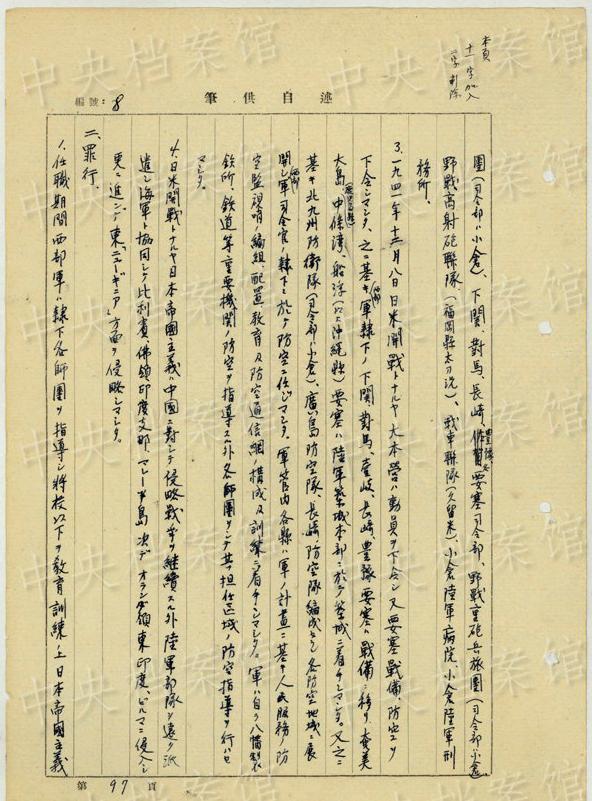 中央档案馆
本頁
十一字加入
一字削除
述自供筆
編號：8
團(司令部ハ小倉)、下関、對馬、長崎、豊豫各要塞司令部、野戰重砲兵旅團(司令部小倉)
野戰高射砲聯隊(福岡縣太刀洗)、戰車聯隊(久留米)、小倉陸軍病院、小倉陸軍刑
務所、
3. 一九四一年十二月八日日米開戰トナルヤ大本營ハ動員ヲ下令シ又要塞戰備、防空ヲ
下令シマシタ。之ニ基キ西部軍隷下ノ下関、對馬、壹岐、長崎、豊豫要塞ハ戰備ニ移リ、奄美
大島、中條湾、船浮(以上沖縄縣)要塞ハ陸軍築城本部ニ於テ築城ニ着手シマシタ。又之ニ
基キ北九州防衛隊(司令部ハ小倉)、廣島防空隊、長崎防空隊編成セラレ各防空地域ニ展
開シ西部軍司令官ノ隷下ニ於テ防空ニ任ジマシタ。軍管内各縣ハ軍ノ計畫ニ基キ人民服務ノ防
空監視哨ノ編組、配置、教育及防空通信網ノ構成及訓練ニ着手シマシタ。軍ハ自ラ八幡製
鉄所、鉄道等重要機関ノ防空ヲ指導スル外各師團ヲシテ其ノ担任区域ノ防空指導ヲ行ハセ
マシタ。
4. 日米開戰トナルヤ日本帝國主義ハ中國ニ對シテ侵略戰爭ヲ継續スル外陸軍部隊ヲ遠ク派
遣シ海軍ト協同シテ比利賓、佛領印度支那、マレー半島次デオランダ領東印度、ビルマニ侵入シ
更ニ進ンデ東「ニューギニア」方面ヲ侵略シマシタ。
二、罪行。
1. 任職期間西部軍ハ隷下各師團ヲ指導シ将校以下ヲ教育訓練ノ上日本帝國主義
第97頁